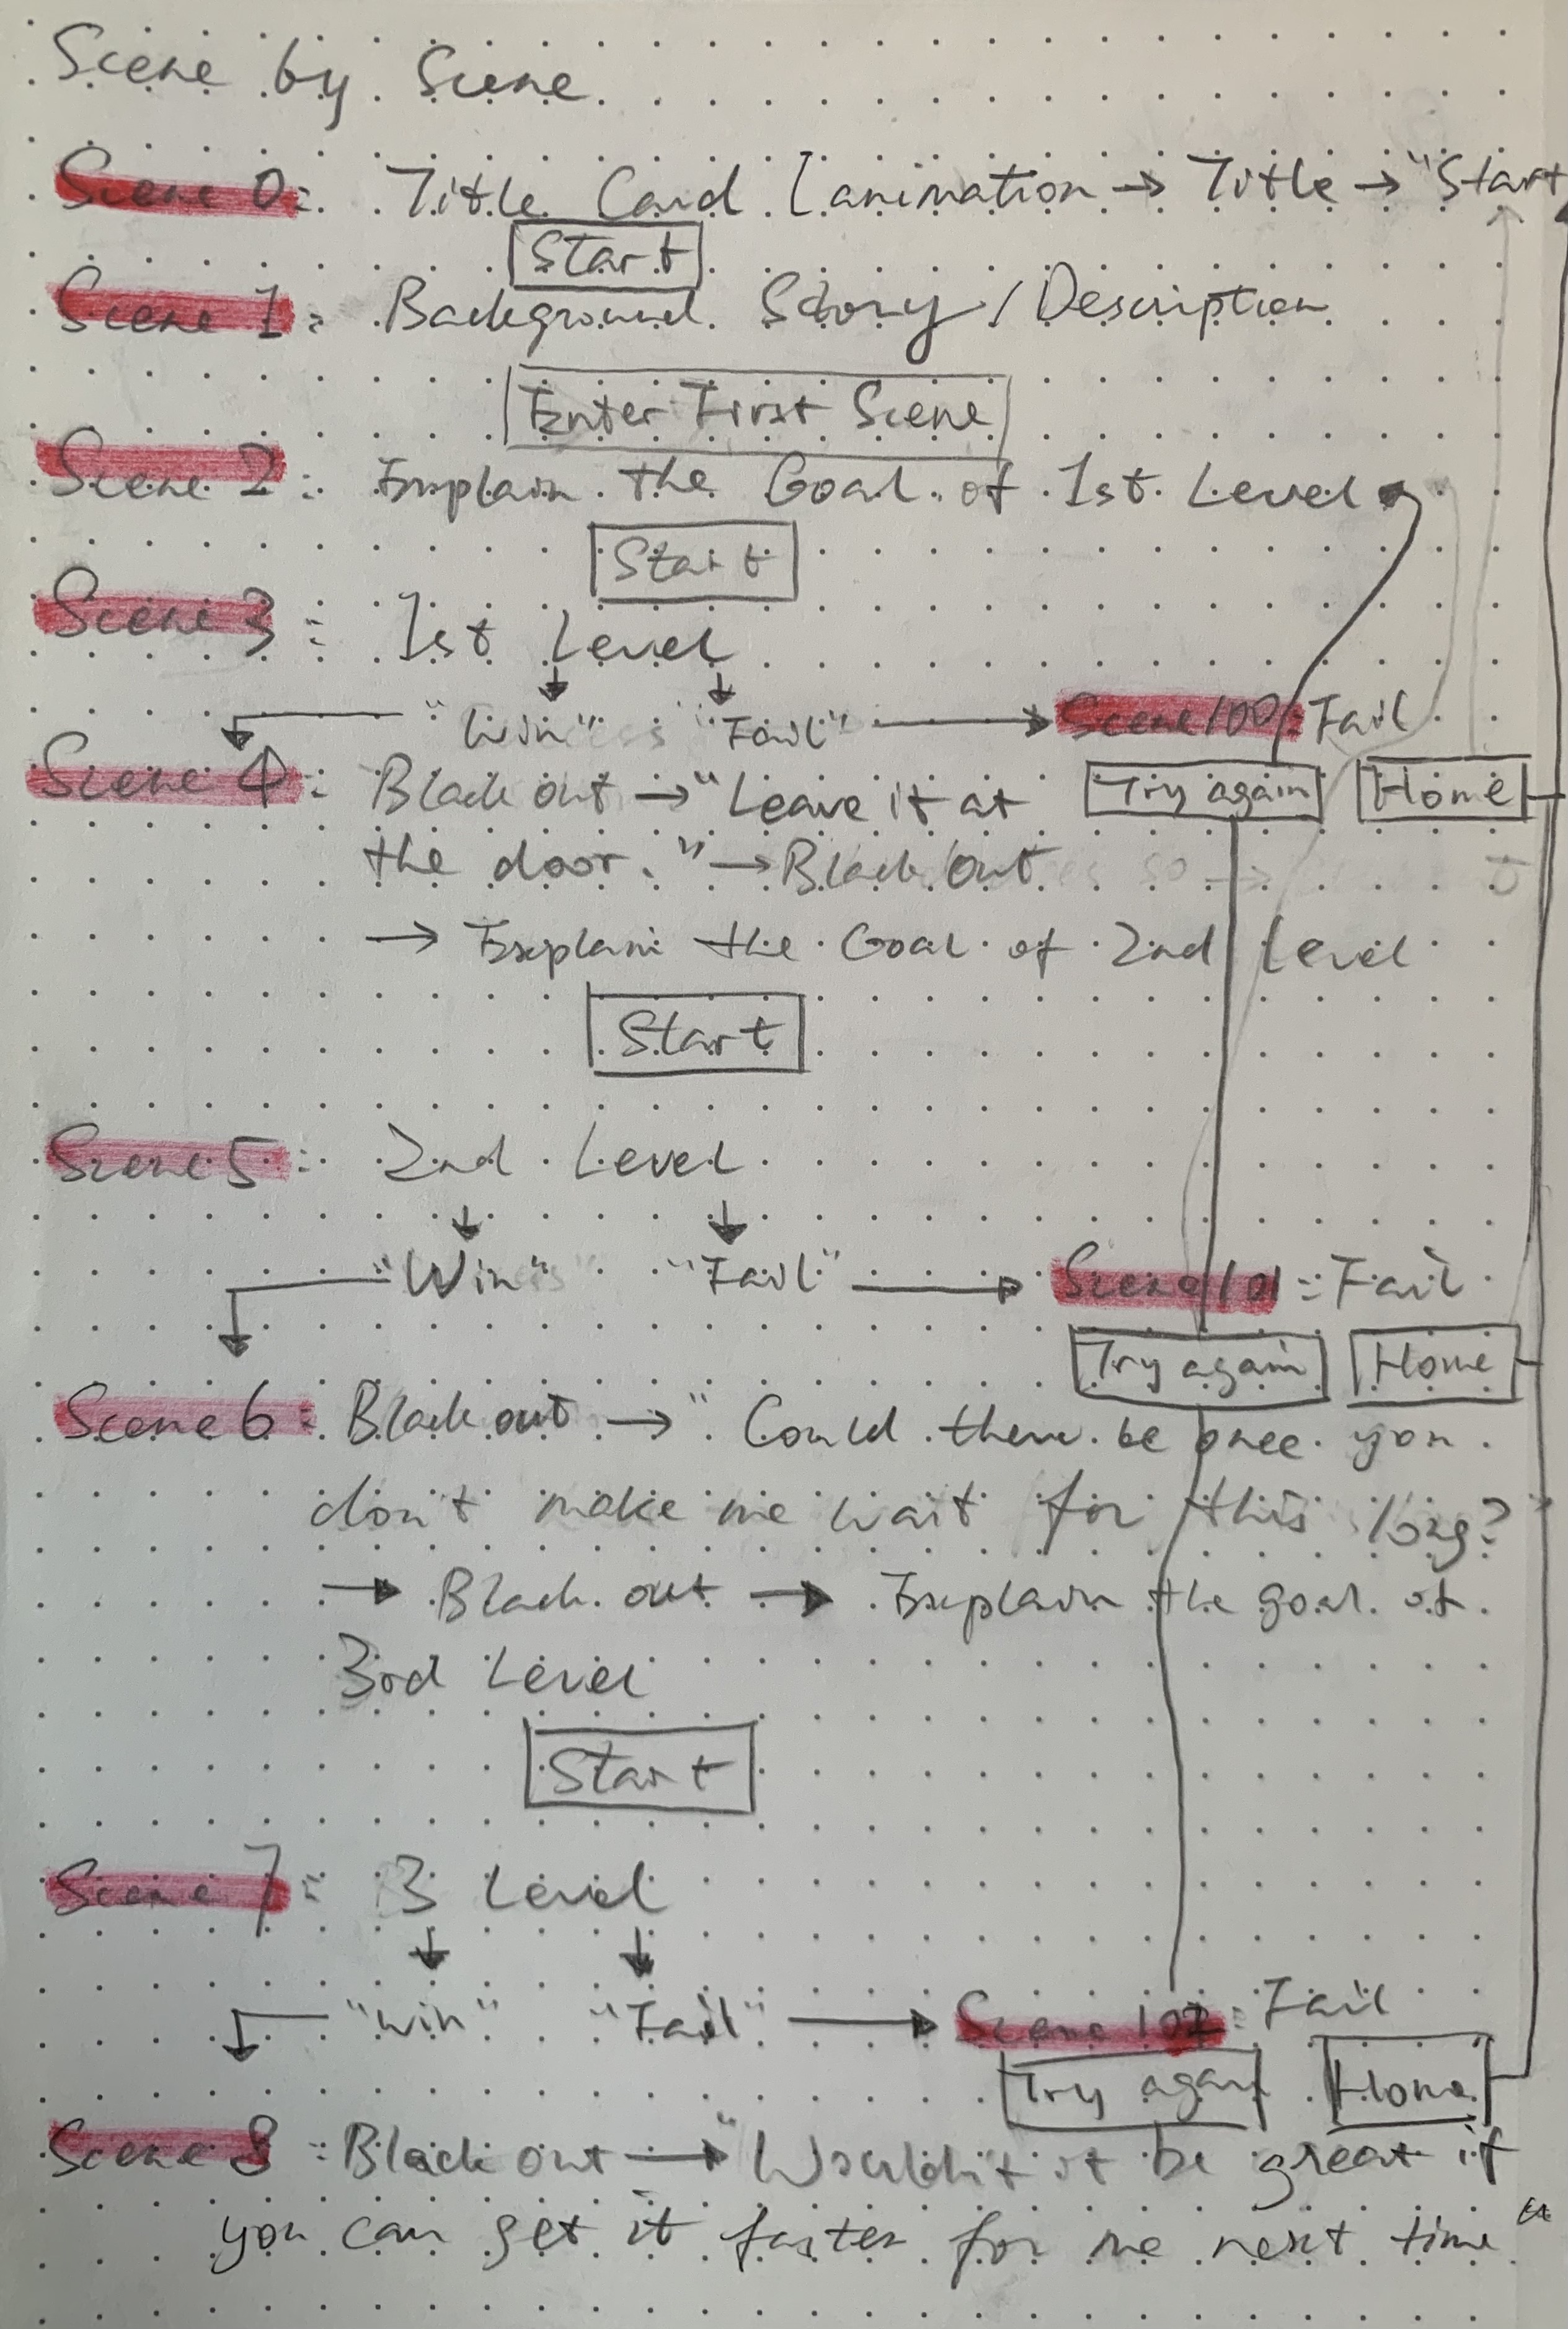 Scene by Scene
Scene 0: Title Card [animation → Title → "Start
Start
Scene 1: Background Story / Description
Enter First Scene
Scene 2: Explain the Goal of 1st Level
Start
Scene 3: 1st Level
"Win" "Fail" → Scene 100: Fail
Scene 4: Black out → "Leave it at Try again Home
the door." → Black Out
→ Explain the Goal of 2nd Level
Start
Scene 5: 2nd Level
"Win" "Fail" → Scene 101: Fail
Try again Home
Scene 6: Black out → " Could there be once you
don't make me wait for this long?
→ Black out → Explain the goal of
3rd Level
Start
Scene 7: 3 Level
"Win" "Fail" → Scene 102: Fail
Try again Home
Scene 8: Black out → " Wouldn't it be great if
you can get it faster for me next time"